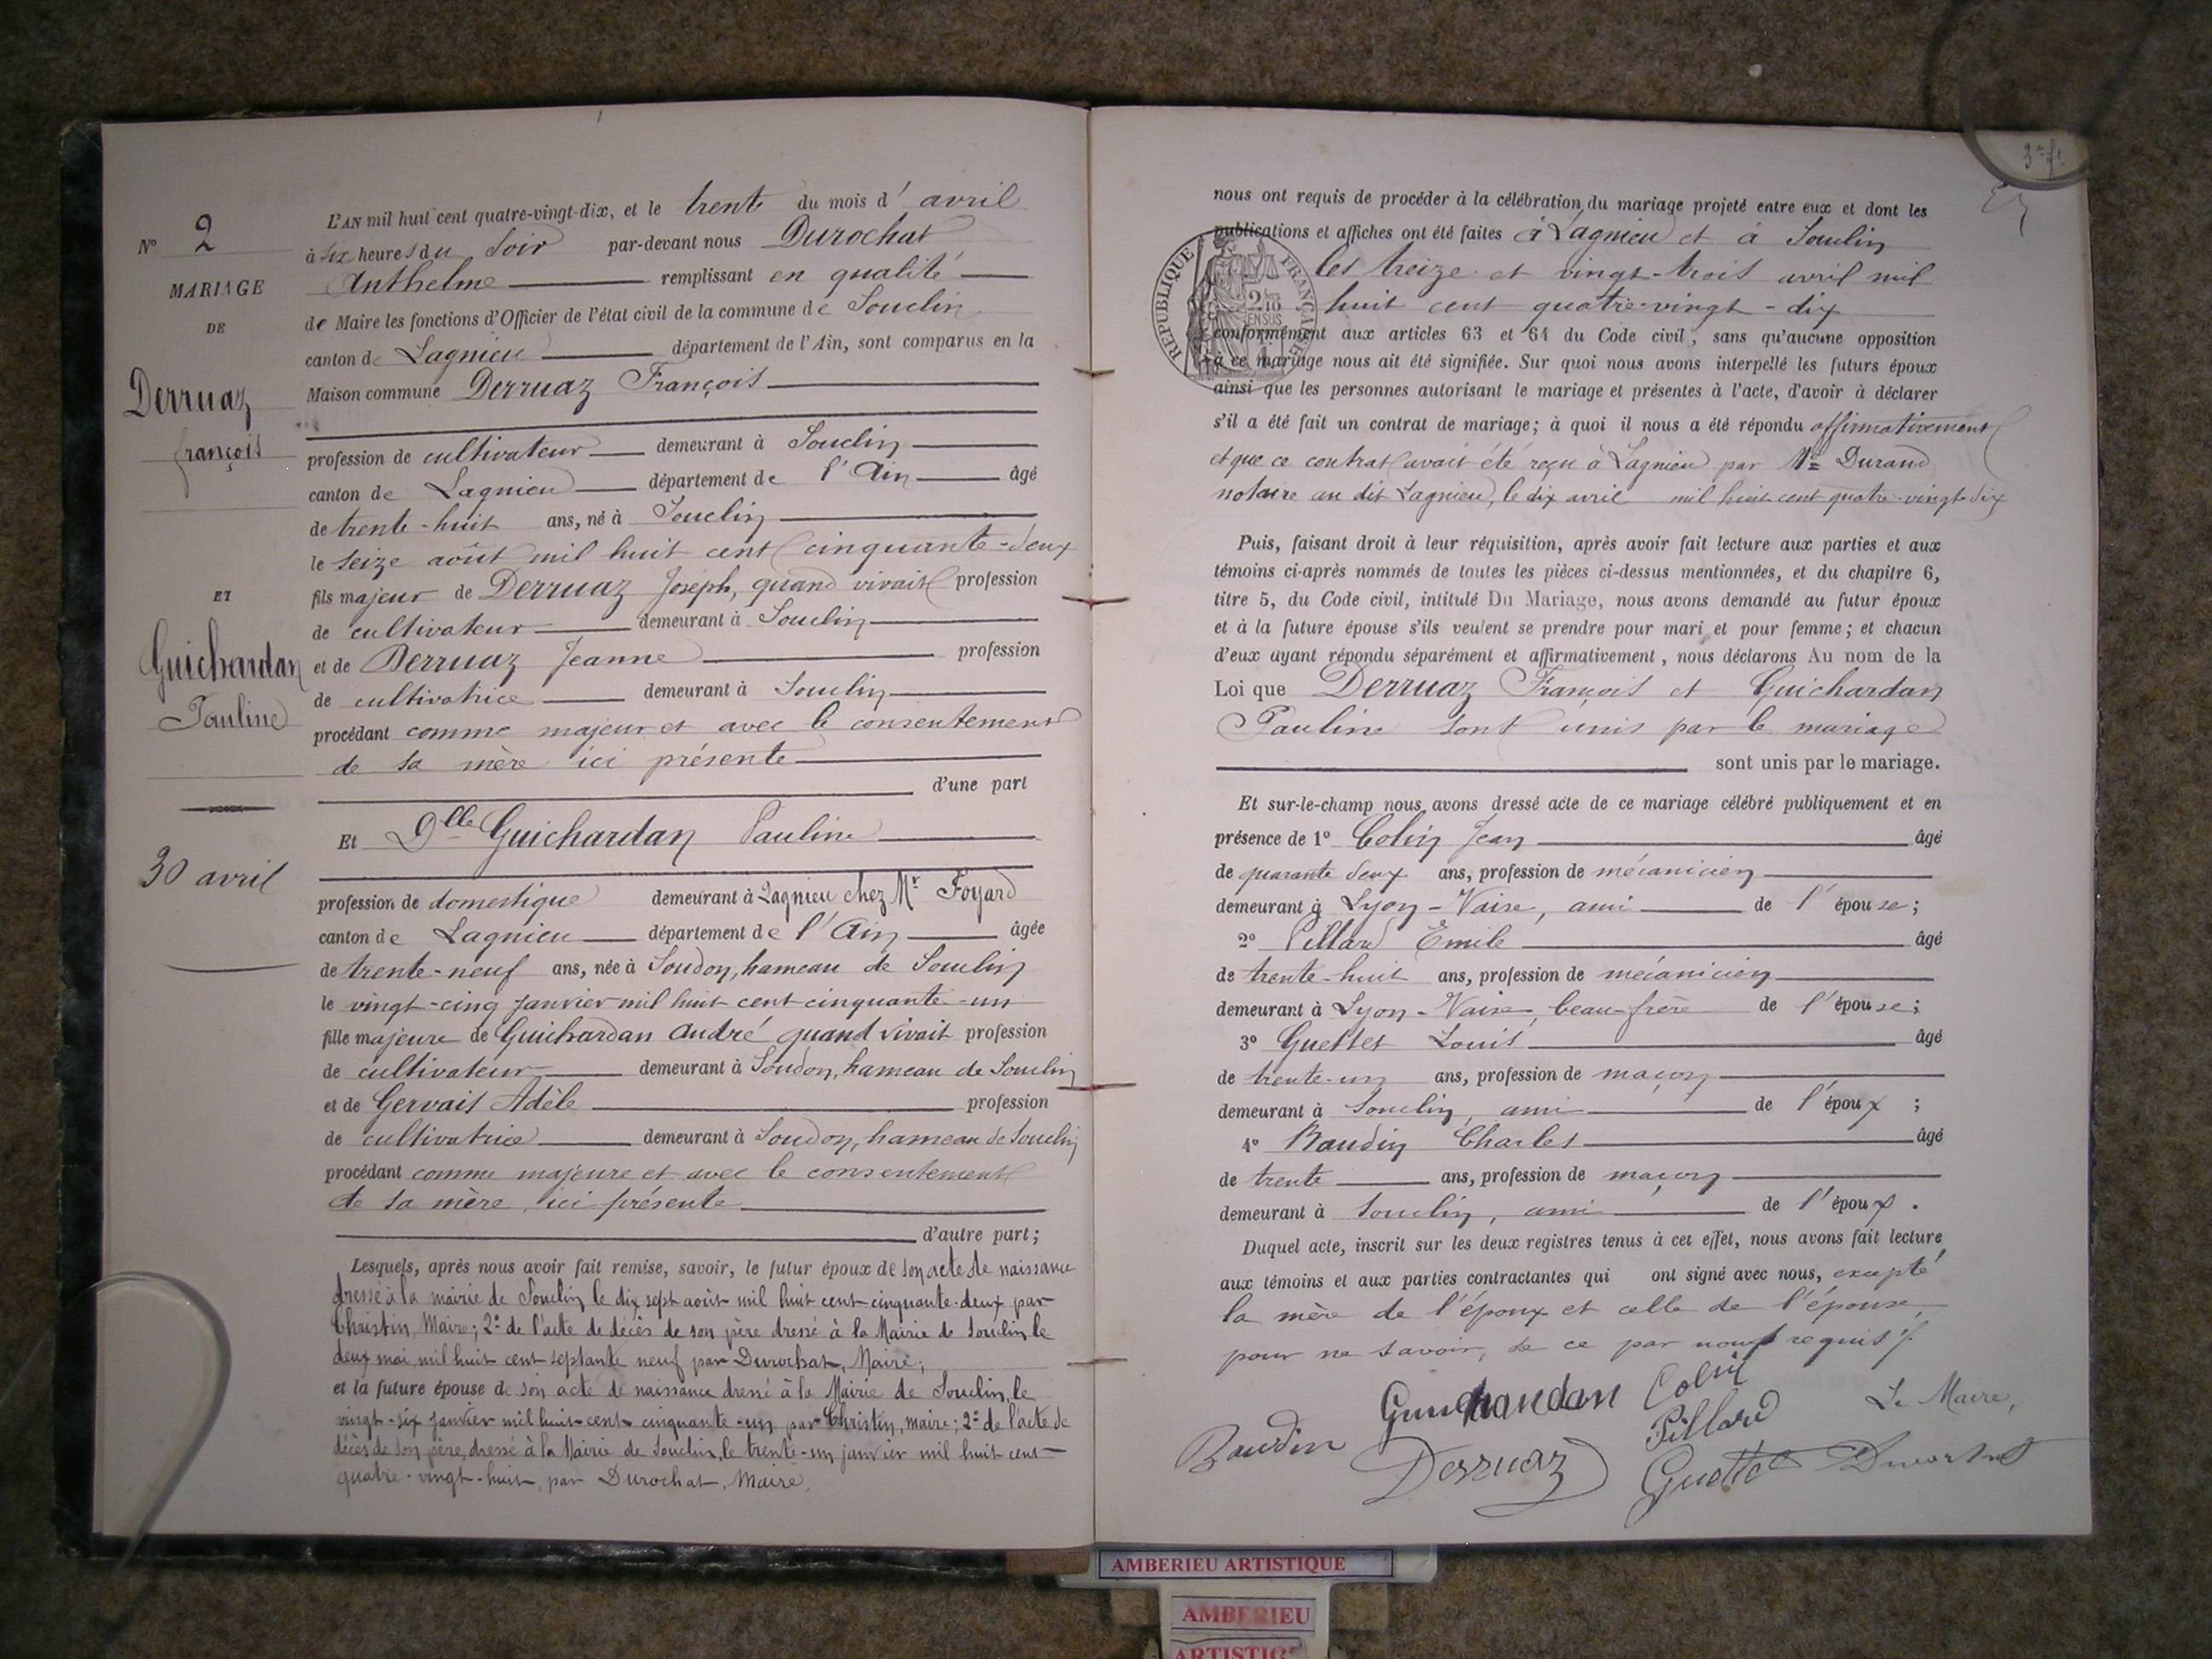 N° 2
MARIAGE
DE
Derruaz
françois
ET
Guichardan
Pauline
30 avril
L'AN mil huit cent quatre-vingt-dix, et le trente du mois d'avril
à six heures du soir par-devant nous Durochat
Anthelme remplissant en qualité
de Maire les fonctions d'Officier de l'état civil de la commune de Souclin
canton de Lagnieu département de l'Ain, sont comparus en la
Maison commune Derruaz François
profession de cultivateur demeurant à Souclin
canton de Lagnieu département de l'Ain âgé
de trente-huit ans, né à Souclin
le seize août mil huit cent cinquante-deux
fils majeur de Derruaz Joseph, quand vivait profession
de cultivateur demeurant à Souclin
et de Derruaz Jeanne profession
de cultivatrice demeurant à Souclin
procédant comme majeur et avec le consentement
de sa mère ici présente
d'une part
Et Dlle Guichardan Pauline
profession de domestique demeurant à Lagnieu chez Mr Foyard
canton de Lagnieu département de l'Ain âgée
de trente-neuf ans, née à Soudon, hameau de Souclin
le vingt-cinq janvier mil huit cent cinquante-un
fille majeure de Guichardan André quand vivait profession
de cultivateur demeurant à Soudon, hameau de Souclin
et de Gervais Adèle profession
de cultivatrice demeurant à Soudon, hameau de Souclin
procédant comme majeure et avec le consentement
de sa mère, ici présente
d'autre part;
Lesquels, après nous avoir fait remise, savoir, le futur époux de son acte de naissance
dressé à la mairie de Souclin le dix sept août mil huit cent cinquante-deux par
Christin, Maire; 2° de l'acte de décès de son père dressé à la Mairie de Souclin le
deux mai mil huit cent septante neuf par Durochat, Maire;
et la future épouse de son acte de naissance dressé à la Mairie de Souclin, le
vingt-six janvier mil huit-cent cinquante-un par Christin, maire; 2° de l'acte de
décès de son père, dressé à la Mairie de Souclin, le trente-un janvier mil huit cent
quatre-vingt-huit, par Durochat, Maire.
nous ont requis de procéder à la célébration du mariage projeté entre eux et dont les
publications et affiches ont été faites à Lagnieu et à Souclin
les treize et vingt-trois avril mil
huit cent quatre-vingt-dix
RÉPUBLIQUE FRANÇAISE
conformément aux articles 63 et 64 du Code civil, sans qu'aucune opposition
à ce mariage nous ait été signifiée. Sur quoi nous avons interpellé les futurs époux
ainsi que les personnes autorisant le mariage et présentes à l'acte, d'avoir à déclarer
s'il a été fait un contrat de mariage; à quoi il nous a été répondu affirmativement
et que ce contrat avait été reçu à Lagnieu par Me Durand
notaire au dit Lagnieu, le dix avril mil huit cent quatre-vingt-dix
Puis, faisant droit à leur réquisition, après avoir fait lecture aux parties et aux
témoins ci-après nommés de toutes les pièces ci-dessus mentionnées, et du chapitre 6,
titre 5, du Code civil, intitulé Du Mariage, nous avons demandé au futur époux
et à la future épouse s'ils veulent se prendre pour mari et pour femme; et chacun
d'eux ayant répondu séparément et affirmativement, nous déclarons Au nom de la
Loi que Derruaz François et Guichardan
Pauline sont unis par le mariage
sont unis par le mariage.
Et sur-le-champ nous avons dressé acte de ce mariage célébré publiquement et en
présence de 1° Colin Jean âgé
de quarante deux ans, profession de mécanicien
demeurant à Lyon-Vaise, ami de l'épouse;
2° Pillard Emile âgé
de trente-huit ans, profession de mécanicien
demeurant à Lyon-Vaise, beau-frère de l'épouse;
3° Guettet Louis âgé
de trente-un ans, profession de maçon
demeurant à Souclin, ami de l'époux;
4° Baudin Charles âgé
de trente ans, profession de maçon
demeurant à Souclin, ami de l'époux.
Duquel acte, inscrit sur les deux registres tenus à cet effet, nous avons fait lecture
aux témoins et aux parties contractantes qui ont signé avec nous, excepté
la mère de l'époux et celle de l'épouse,
pour ne savoir, de ce par nous requis
Guichandan Colin
Pillard Le Maire,
Baudin Derruaz Guettet Durochat
AMBERIEU ARTISTIQUE
AMBERIEU
ARTISTIQ